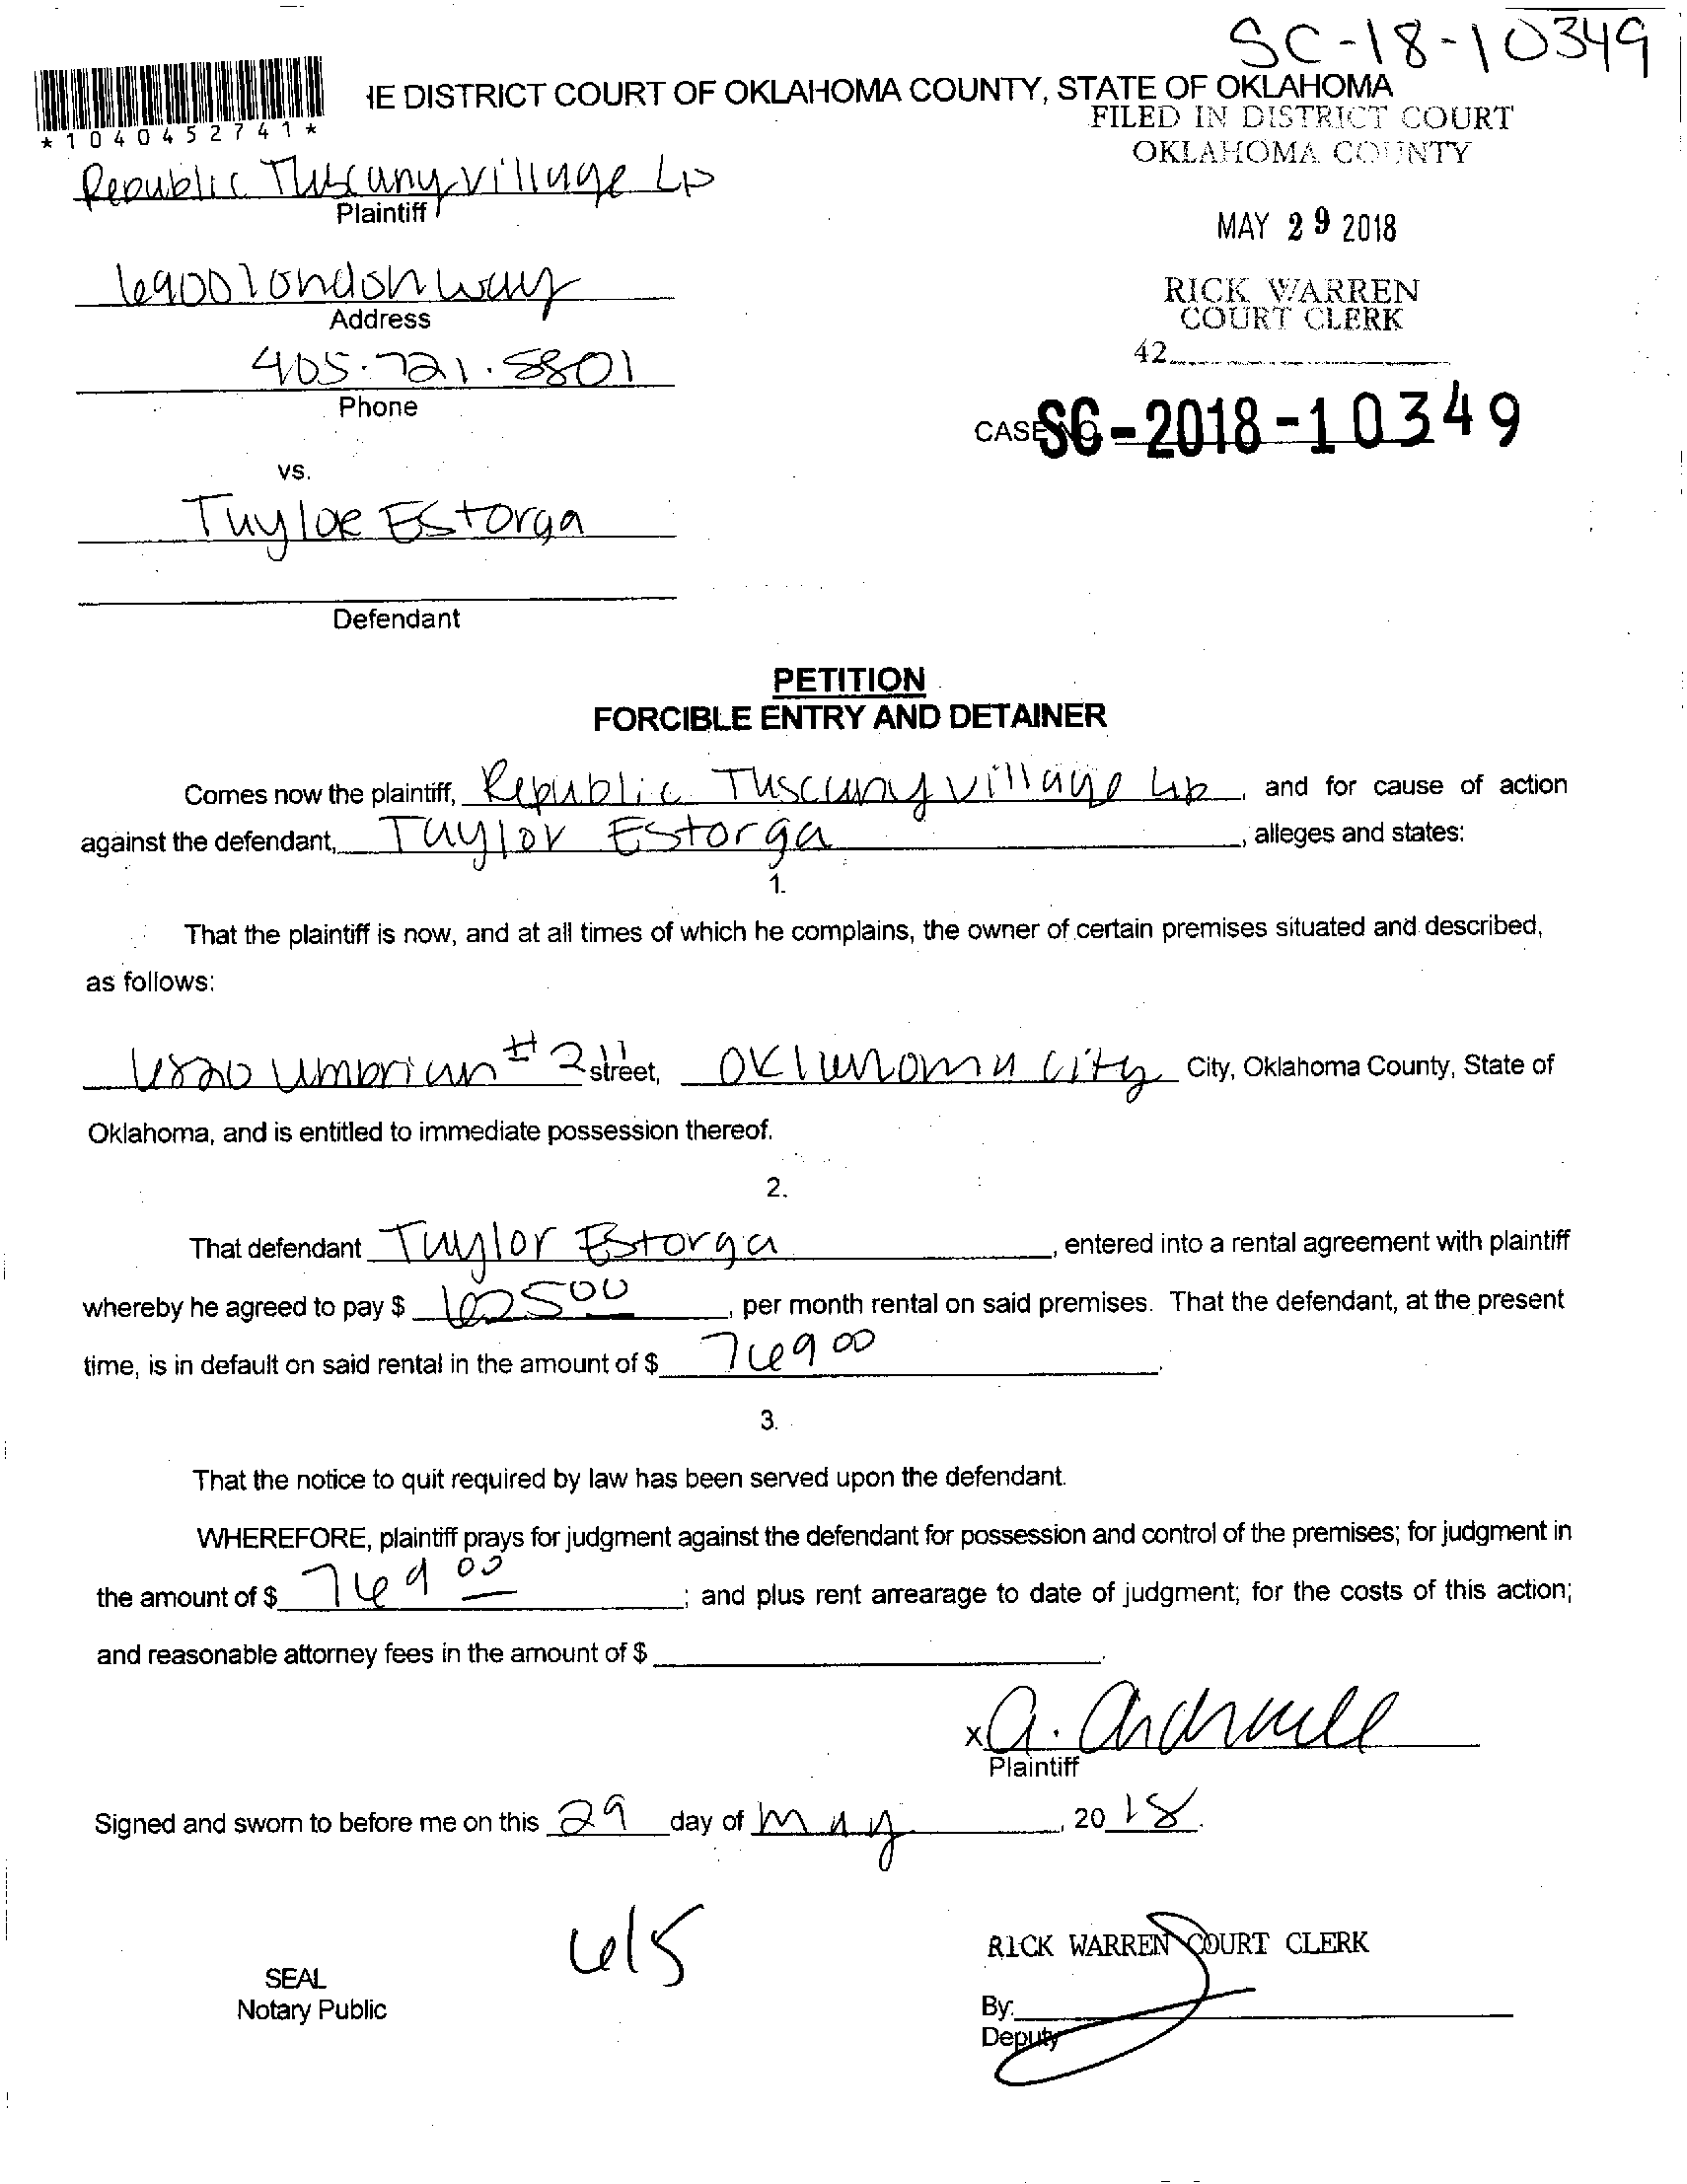 SC-18-10349
HE DISTRICT COURT OF OKLAHOMA COUNTY, STATE OF OKLAHOMA
*1040452741*
FILED IN DISTRICT COURT
OKLAHOMA COUNTY
Republic Tuscany village LP
Plaintiff
MAY 29 2018
6900 london way
Address
RICK WARREN
COURT CLERK
405.721.5801
Phone
42
CASE NO. SC-2018-10349
vs.
Taylor Estorga
Defendant
PETITION
FORCIBLE ENTRY AND DETAINER
Comes now the plaintiff, Republic Tuscany village Lp, and for cause of action
against the defendant, Taylor Estorga, alleges and states:
1.
That the plaintiff is now, and at all times of which he complains, the owner of certain premises situated and described,
as follows:
6820 umbrian #2 street, Oklahoma City City, Oklahoma County, State of
Oklahoma, and is entitled to immediate possession thereof.
2.
That defendant Taylor Estorga, entered into a rental agreement with plaintiff
whereby he agreed to pay $ 625 00, per month rental on said premises. That the defendant, at the present
time, is in default on said rental in the amount of $ 769 00.
3.
That the notice to quit required by law has been served upon the defendant.
WHEREFORE, plaintiff prays for judgment against the defendant for possession and control of the premises; for judgment in
the amount of $ 769 00; and plus rent arrearage to date of judgment; for the costs of this action;
and reasonable attorney fees in the amount of $
x
Plaintiff
Signed and sworn to before me on this 29 day of May, 2018.
615
RICK WARREN COURT CLERK
SEAL
Notary Public
By:
Deputy